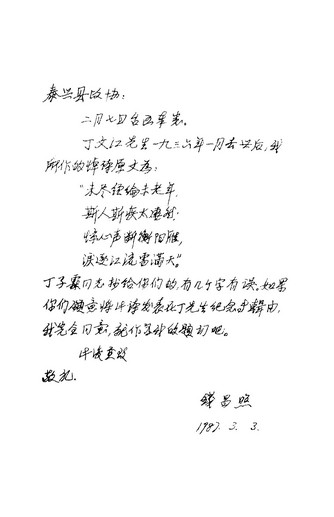 泰兴县政协：
二月七日台函奉悉。
丁文江先生一九三六年一月去世后，我
所作的悼诗原文为：
“未尽经纶未老年，
斯人斯疾太凄然。
惊心声断衡阳雁，
泪逐江流雪满天”。
丁子霖同志抄给你们的，有几个字有误。如果
你们愿意将此诗发表在丁先生纪念专辑内，
我完全同意，就作为我的题词吧。
此复
敬礼
钱昌照
1987. 3. 3.